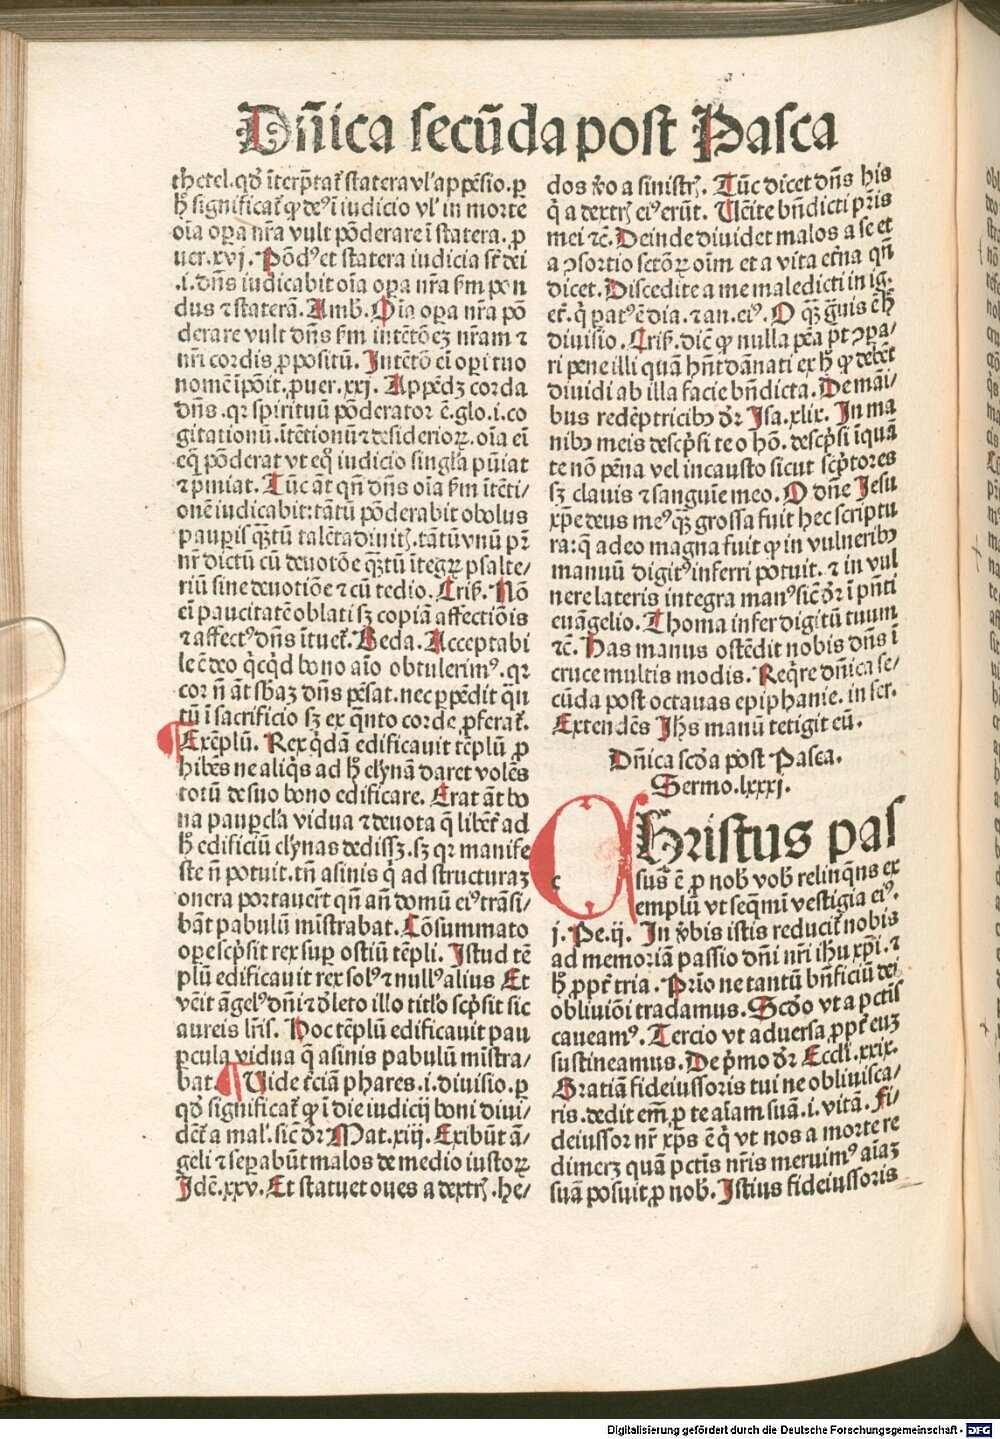 Dñica secũda post Pasca
thetel.qď ĩterp̃tat᷑ statera vl᷑ appẽsio.ꝑ
ħ significat᷑ ꝙ deꝰ ĩ iudicio vl᷑ in morte
oĩa oꝑa nr̃a vult põderare ĩ statera. ꝓ
uer.xvj. Põdꝰ et statera iudicia st᷑ dei
.i. dñs iudicabit oĩa oꝑa nr̃a ẜm pon
dus ⁊ staterã. Amb. Oĩa oꝑa nr̃a põ
derare vult dñs ẜm intẽtõeꝫ nr̃am ⁊
nr̃i cordis ꝓpositũ. Intẽtõ eĩ oꝑi tuo
nomẽ ĩpõit. ꝓuer.xxj. Appẽdꝫ corda
dñs. qꝛ spirituũ põderator ẽ. glo.i.co
gitationũ.ĩtẽtionũ ⁊ desiderioꝝ. oĩa eĩ
eq̃ põderat vt eq̃ iudicio singl᷑a pũiat
⁊ p̃miat. Tũc at̃ qñ dñs oĩa ẜm ĩtẽti-
onẽ iudicabit: tãtũ põderabit obolus
pauꝑis q̃ꝫtũ talẽta diuitꝭ. tãtũ vnũ pr̃
nr̃ dictũ cũ deuotõe q̃ꝫtũ ĩtegꝝ psalte-
riũ sine deuotiõe ⁊ cũ tedio. Cris̃. Nõ
eĩ paucitatẽ oblati sꝫ copiã affectiõis
⁊ affectꝰ dñs ĩtuet᷑. Beda. Acceptabi
le ẽ deo q̇cq̇d bono aĩo obtulerimꝰ. qꝛ
cor ñ at̃ sb̃aꝫ dñs pẽsat. nec ꝑpẽdit q̃n
tũ ĩ sacrificio sꝫ ex q̃nto corde ꝓferat᷑.
¶Exẽplũ. Rex q̇dã edificauit tẽplũ ꝓ
hibẽs ne aliq̇s ad ħ elynã daret volẽs
totũ de suo bono edificare. Erat at̃ bo
na pauꝑcl᷑a vidua ⁊ deuota q̃ libẽt᷑ ad
ħ edificiũ elynas dedissꝫ. sꝫ qꝛ manife
ste ñ potuit. tñ asinis q̇ ad structuraꝫ
onera portauer̃t qñ añ domũ eiꝰ trãsi-
bãt pabulũ mĩstrabat. Cõsummato
oꝑe sc̃psit rex suꝑ ostiũ tẽpli. Istud tẽ
plũ edificauit rex solꝰ ⁊ nullꝰ alius Et
vẽit ãgelꝰ dñi ⁊ ďleto illo titl᷑o sc̃psit sic
aureis lr̃is. Hoc tẽplũ edificauit pau
ꝑcula vidua q̃ asinis pabulũ mĩstra-
bat. ¶Vide t᷑ciã phares.i.diuisio.ꝑ
qď significat᷑ ꝙ ĩ die iudicij boni diui-
dẽt᷑ a mal᷑. sic ďr Mat.xiij. Exibũt ã-
geli ⁊ seꝑabũt malos de medio iustoꝝ
Idẽ.xxv. Et statuet oues a dextrꝭ. he-
dos ꝟo a sinistrꝭ. Tũc dicet dñs his
q̇ a dextrꝭ eiꝰ erũt. Uẽite bñdicti pr̃is
mei ⁊c̃. Deinde diuidet malos a se et
a ꝯsortio sctõꝝ oĩm et a vita et᷑na qñ
dicet. Discedite a me maledicti in ig.
et᷑. q̇ patꝰ ẽ dia. ⁊ an. eiꝰ. O q̃ꝫ g᷑uis ẽ ħ
diuisio. Cris̃. dic̃ ꝙ nulla pẽa pt̃ ꝯpa-
ri pene illi quã hñt dãnati ex ħ ꝙ debẽt
diuidi ab illa facie bñdicta. De mãi-
bus redẽptricibꝰ ďr Isa.xlix. In ma
nibꝰ meis descp̃si te o hõ. descp̃si ĩquã
te nõ pẽna vel incausto sicut sc̃ptores
sꝫ clauis ⁊ sanguĩe meo. O dñe Jesu
xp̃e deus meꝰ q̃ꝫ grossa fuit hec scriptu
ra: q̃ adeo magna fuit ꝙ in vulneribꝰ
manuũ digitꝰ inferri potuit. ⁊ in vul
nere lateris integra manꝰ sic̃ ďr ĩ pñti
euãgelio. Thoma infer digitũ tuum
⁊c̃. Has manus ostẽdit nobis dñs ĩ
cruce multis modis. Req̇re dñica se-
cũda post octauas epiphanie. in ser.
Extendẽs Jhs manũ tetigit eũ.
Dñica scďa post Pasca.
Sermo.lxxxj.
CHristus pas
sus ẽ ꝓ nob᷑ vob᷑ relinq̃ns ex
emplũ vt seq̃mĩ vestigia eiꝰ.
j. Pe.ij. In ꝟbis istis reducit᷑ nobis
ad memoriã passio dñi nr̃i ihu xp̃i. ⁊
ħ ꝓpt᷑ tria. Prĩo ne tantũ bñficiũ dei
obliuiõi tradamus. Scďo vt a pctĩs
caueamꝰ. Tercio vt aduersa ꝓpt᷑ euꝫ
sustineamus. De pṁo ďr Eccli.xxix.
Gratiã fideiussoris tui ne obliuisca-
ris. dedit em̃ ꝓ te aĩam suã.i.vitã. Fi-
deiussor nr̃ xp̃s ẽ q̇ vt nos a morte re
dimerꝫ quã pctĩs nr̃is meruimꝰ aĩaꝫ
suã posuit ꝓ nob᷑. Istius fideiussoris
Digitalisierung gefördert durch die Deutsche Forschungsgemeinschaft - DFG